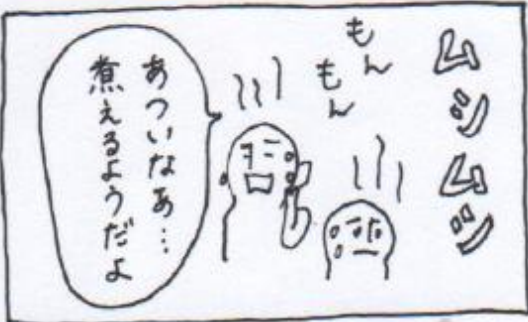 ムシムシ
もん
もん
あついなあ…
煮えるようだよ